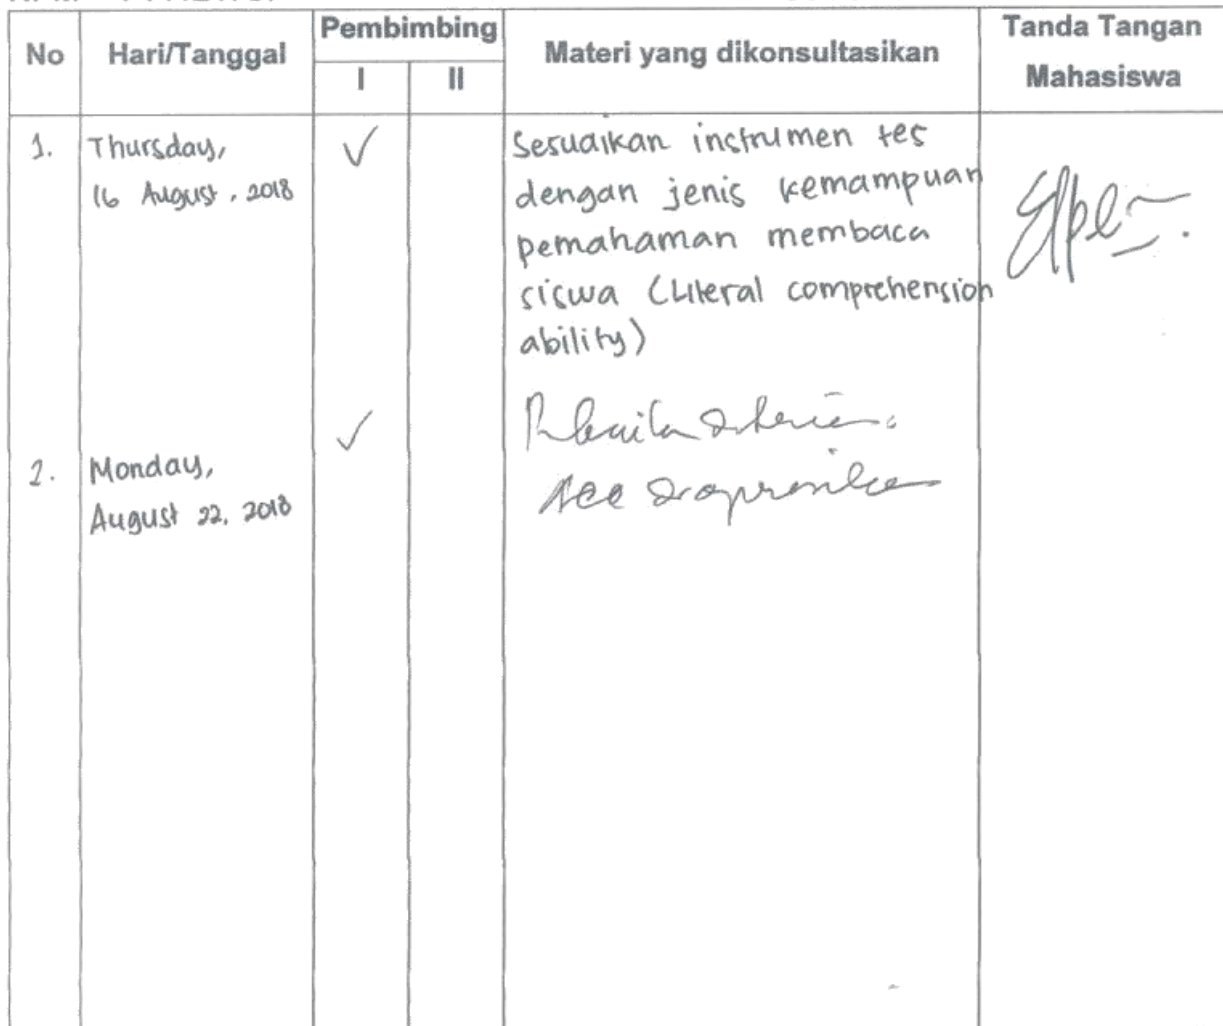 No Hari/Tanggal Pembimbing Materi yang dikonsultasikan Tanda Tangan Mahasiswa
I II
1. Thursday, Sesuaikan instrumen tes
16 August, 2018 dengan jenis kemampuan
pemahaman membaca
siswa (Literal comprehension
ability)
2. Monday,
August 22, 2018
Acc